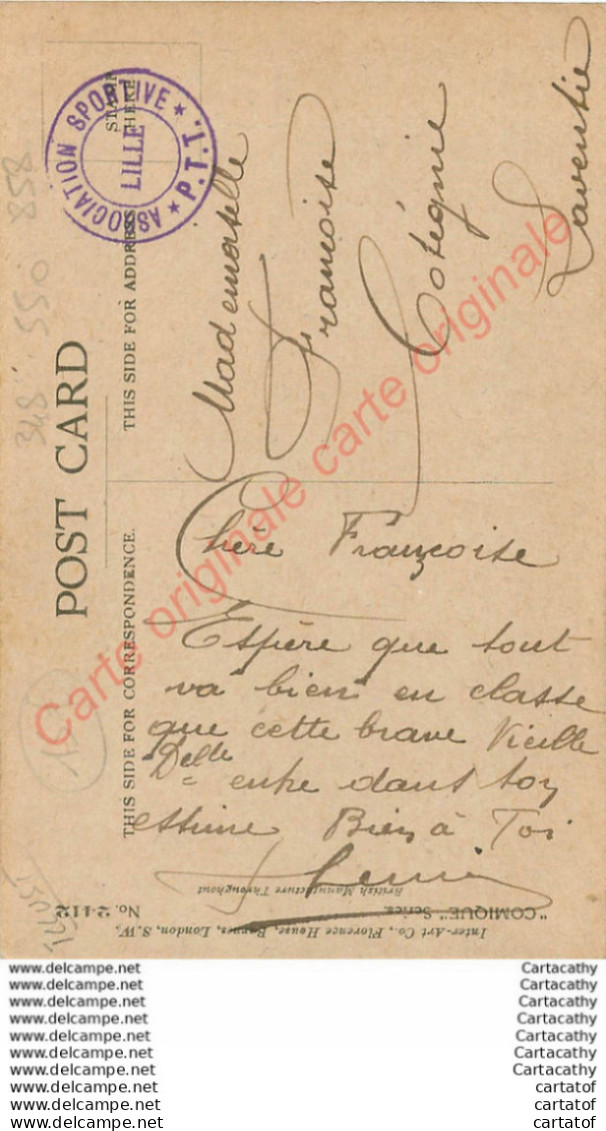 POST CARD
THIS SIDE FOR CORRESPONDENCE.
THIS SIDE FOR ADDRESS
STAMP
HERE
ASSOCIATION SPORTIVE * P.T.T. *
LILLE
348 550 858
Mademoiselle
Françoise
Cotégnie
Laventie
Chère Françoise
Espère que tout
va bien en classe
que cette brave Vieille
Delle entre dans toy
estime Bien à Toi
"COMIQUE" Series. No. 2412
British Manufacture Throughout
Inter-Art Co., Florence House, Barnes, London, S.W.
Carte originale carte originale
www.delcampe.net Cartacathy
www.delcampe.net Cartacathy
www.delcampe.net Cartacathy
www.delcampe.net Cartacathy
www.delcampe.net Cartacathy
www.delcampe.net Cartacathy
www.delcampe.net Cartacathy
www.delcampe.net cartatof
www.delcampe.net cartatof
www.delcampe.net cartatof